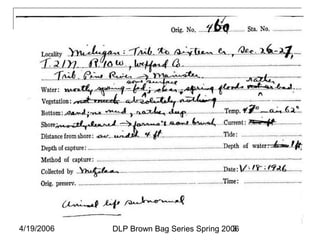 Orig. No. 460 Sta. No.
Locality Michigan: Trib. to Sixteen Cr, Sec. 26-27,
T. 21N R 10W, Wexford Co.
Trib. Pine River → Manistee
some surface rather
Water: mostly spring-fed; clear, spring floods not so bad
Vegetation: not much absolutely nothing
Bottom: sand, no mud, rather deep Temp. 47° - air 62°
Shore: mostly cleared → farms & some brush Current:
Distance from shore: av. width 4 ft Tide:
Depth of capture: Depth of water: 1 ft
Method of capture:
Collected by Metzelaar Date: V-18-1926
Orig. preserv. Time:
Animal life subnormal
4/19/2006 DLP Brown Bag Series Spring 2006